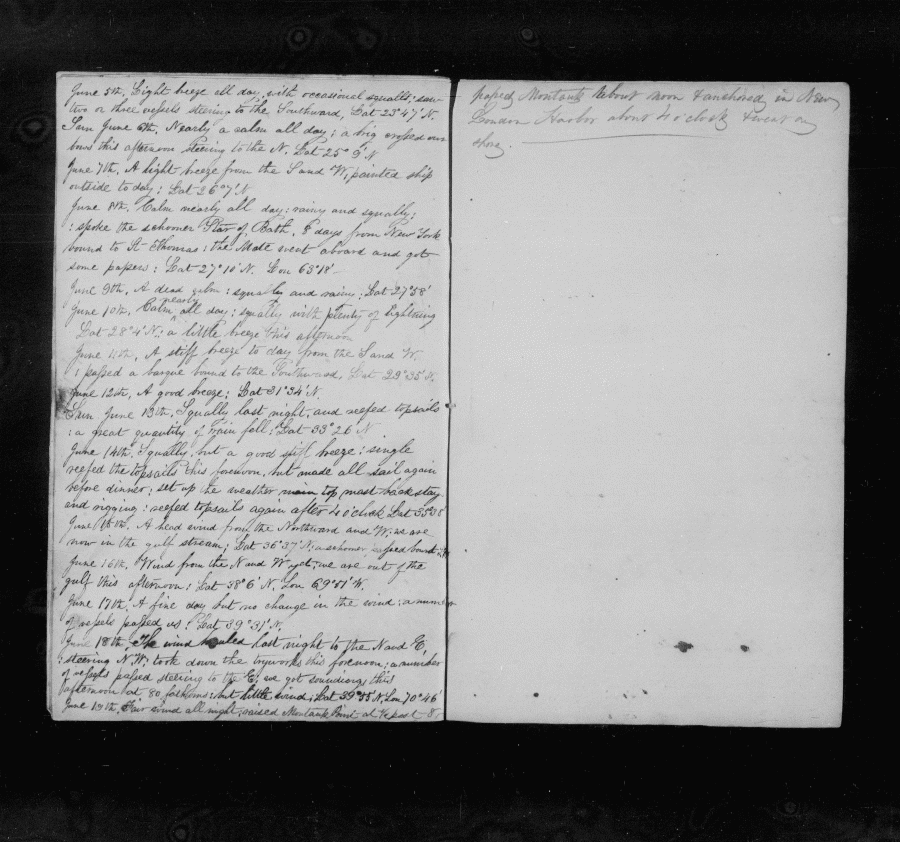 June 5th. Light breeze all day, with occasional squalls; saw
two or three vessels steering to the Southward, Lat 23°47' N.
Sun June 6th, Nearly a calm all day; a brig crossed our
bows this afternoon steering to the N. Lat 25° 9' N
June 7th. A light breeze from the S and W; painted ship
outside to day; Lat 26°7' N
June 8th. Calm nearly all day: rainy and squally;
: spoke the schooner Star of Bath, 8 days from New York
bound to St Thomas: the Mate went aboard and got
some papers: Lat 27°10' N. Lon 63°18'
June 9th. A dead calm: squally and rainy; Lat 27°58'
June 10th. Calm nearly all day: squally with plenty of lightning
Lat 28°4' N.: a little breeze this afternoon
June 11th. A stiff breeze to day from the S and W.
; passed a barque bound to the Southward, Lat 29°35' N.
June 12th, A good breeze; Lat 31°34' N.
Sun June 13th. Squally last night, and reefed topsails
: a great quantity of rain fell: Lat 33°26 N
June 14th. Squally, but a good stiff breeze: single
reefed the topsails this forenoon, but made all sail again
before dinner; set up the weather main top mast backstay
and rigging: reefed topsails again after 4 o'clock Lat 35°38'
June 15th. A head wind from the Northward and W; we are
now in the gulf stream; Lat 36°37' N; a schooner passed bound
June 16th, Wind from the N and W yet; we are out of the
gulf this afternoon: Lat 38°6' N. Lon 69°51' W.
June 17th. A fine day but no change in the wind: a number
of vessels passed us: Lat 39°31' N.
June 18th. The wind hauled last night to the N and E,
: steering N.W; took down the tryworks this forenoon; a number
of vessels passed steering to the E; we got soundings this
afternoon at 80 fathoms: but little wind; Lat 39°55' N. Lon 70°46'
June 19th. Fair wind all night; raised Montauk Point at ½ past 8,
passed Montauk about noon & anchored in New
London Harbor about 4 o'clock & went on
shore.